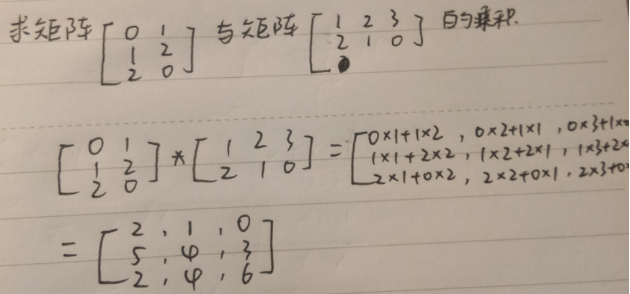 求矩阵[0 1; 1 2; 2 0]与矩阵[1 2 3; 2 1 0]的乘积.
[0 1; 1 2; 2 0]*[1 2 3; 2 1 0]=[0×1+1×2, 0×2+1×1, 0×3+1×; 1×1+2×2, 1×2+2×1, 1×3+2×; 2×1+0×2, 2×2+0×1, 2×3+0]
=[2, 1, 0; 5, 4, 3; 2, 4, 6]